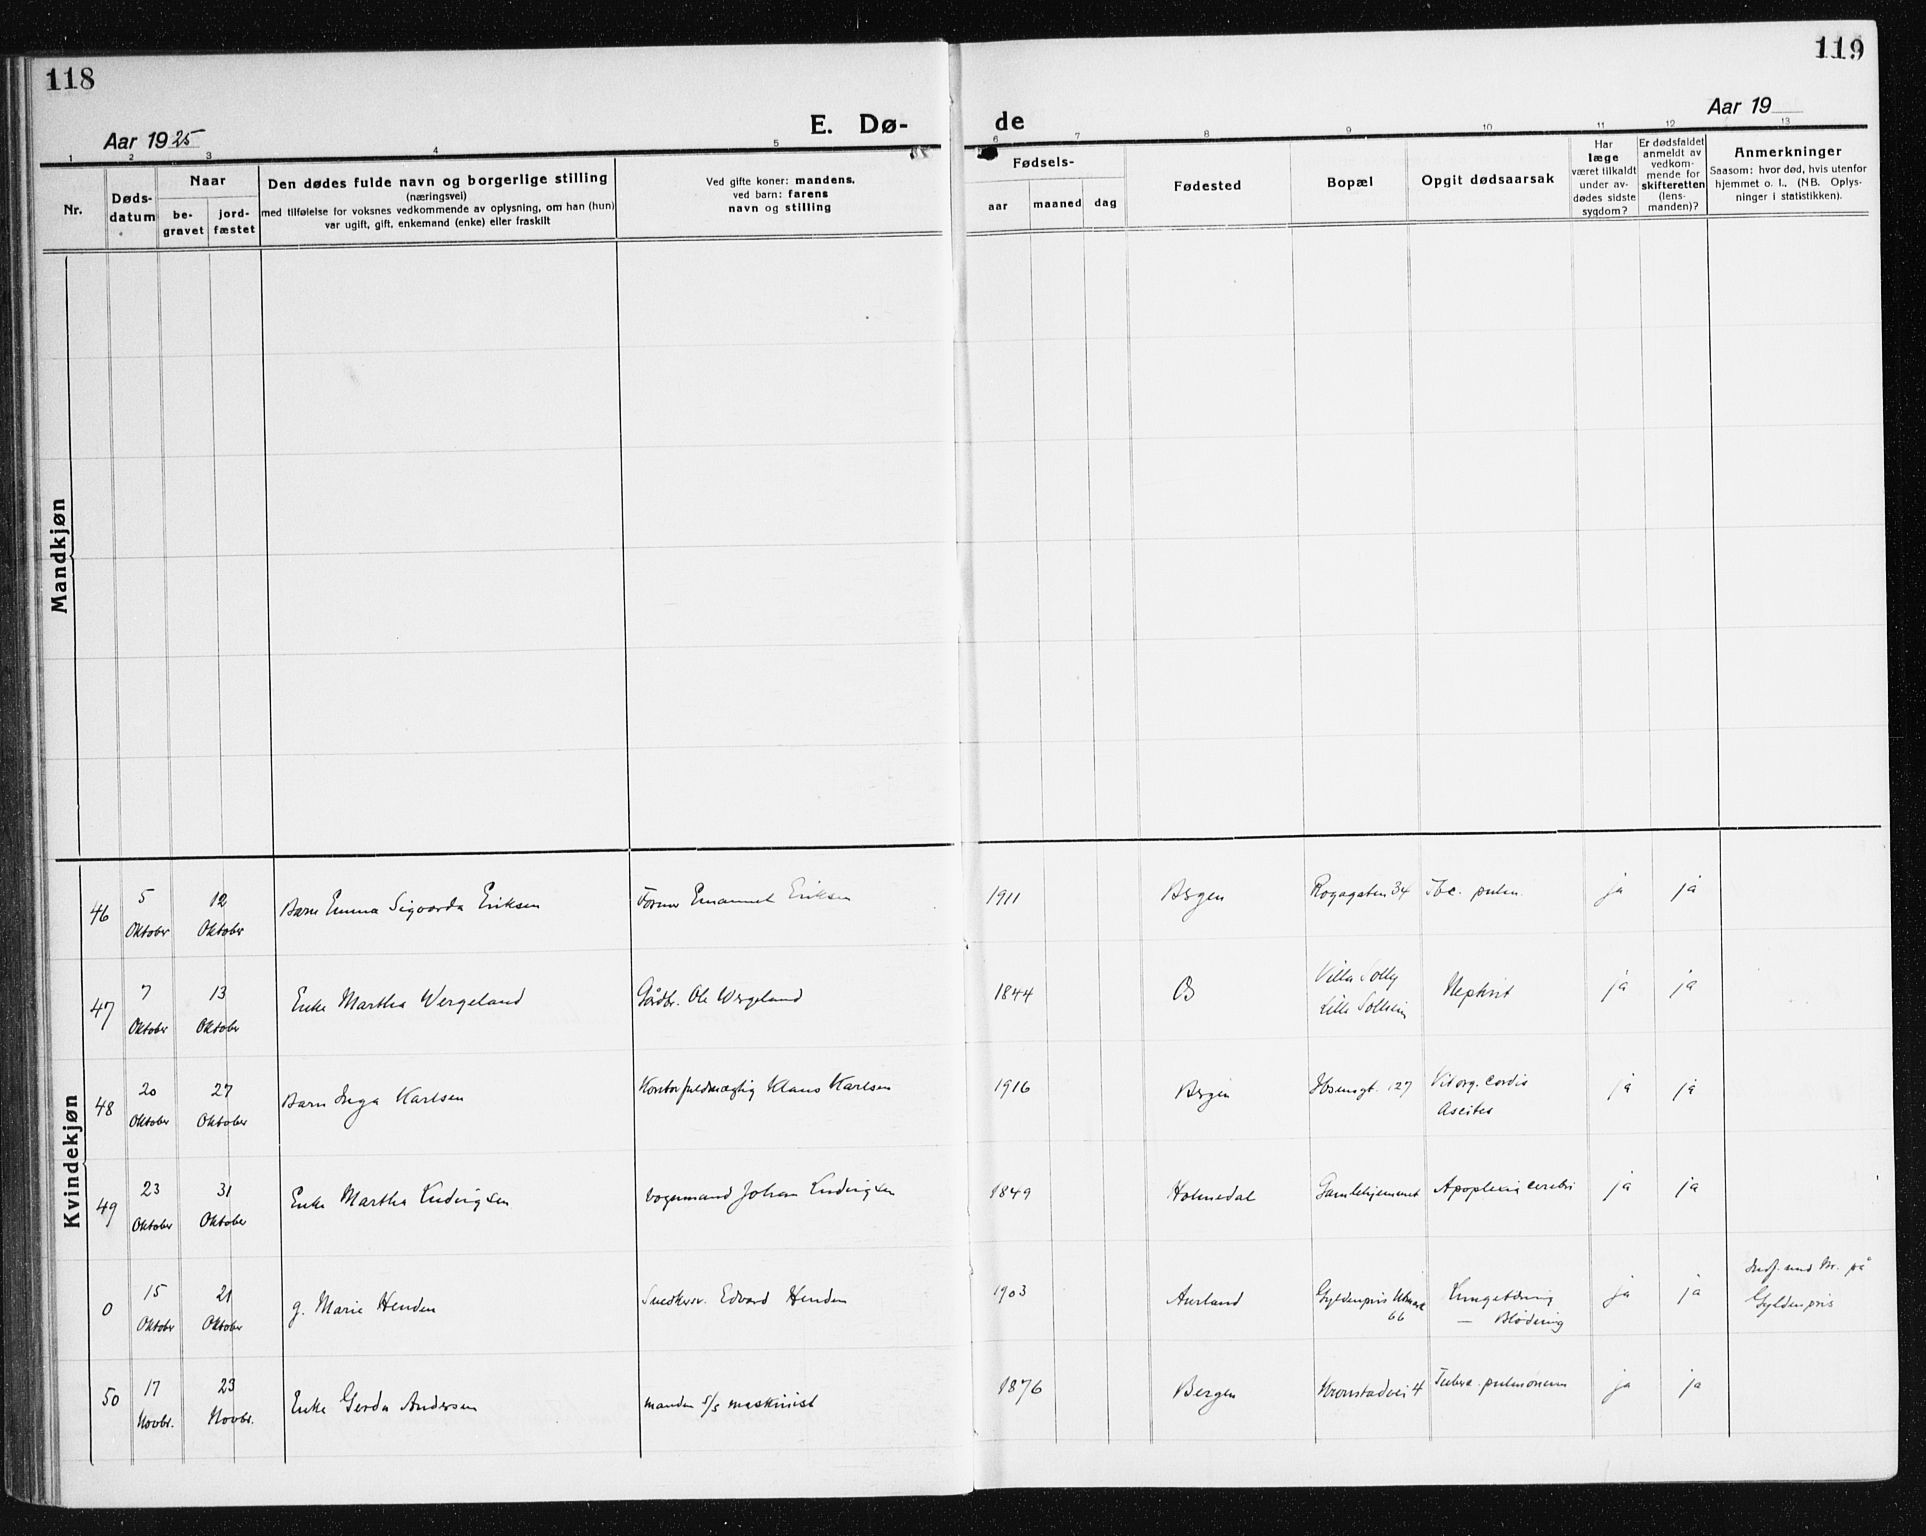 118
119
Aar 1925
E. Dø-
de
Aar 19
1 2 3 4 5 6 7 8 9 10 11 12 13
Nr.
Døds-
datum
Naar
be-
gravet
jord-
fæstet
Den dødes fulde navn og borgerlige stilling
(næringsvei)
med tilføielse for voksnes vedkommende av oplysning, om han (hun)
var ugift, gift, enkemand (enke) eller fraskilt
Ved gifte koner: mandens.
ved barn: farens
navn og stilling
Fødsels-
aar maaned dag
Fødested
Bopæl
Opgit dødsaarsak
Har
læge
været tilkaldt
under av-
dødes sidste
sygdom?
Er dødsfaldet
anmeldt av
vedkom-
mende for
skifteretten
(lens-
manden)?
Anmerkninger
Saasom: hvor død, hvis utenfor
hjemmet o. l., (NB. Oplys-
ninger i statistikken).
Mandkjøn
Kvindekjøn
46 5 Oktober 12 Oktober Barn Emma Sigvarda Eriksen Former Emanuel Eriksen 1911 Bergen 34 Tbc. pulm. ja ja
47 7 Oktober 13 Oktober Enke Martha Wergeland Gårdbr. Ole Wergeland 1844 B Villa Solly
Lille Solheim Nephrit ja ja
48 20 Oktober 27 Oktober Barn Inga Karlsen Kontorfuldmægtig Klaus Karlsen 1916 Bergen Ibsensgt. 127 Vit. org. cordis
Ascites ja ja
49 23 Oktober 31 Oktober Enke Martha Ludvigsen Vognmand Johan Ludvigsen 1849 Holmedal Gamlehjemmet Apoplexia cerebri ja ja
0 15 Oktober 21 Oktober g. Marie Henden Snedkersv. Edvard Henden 1903 Aurland Gyldenpris
66 Lungetæring
— Blødning ja ja Indf. med Nr. på
Gyldenpris
50 17 Novbr. 23 Novbr. Enke Gerda Andersen manden S/S maskinist 1876 Bergen Kronstadvei 4 Tuberc. pulmonum ja ja